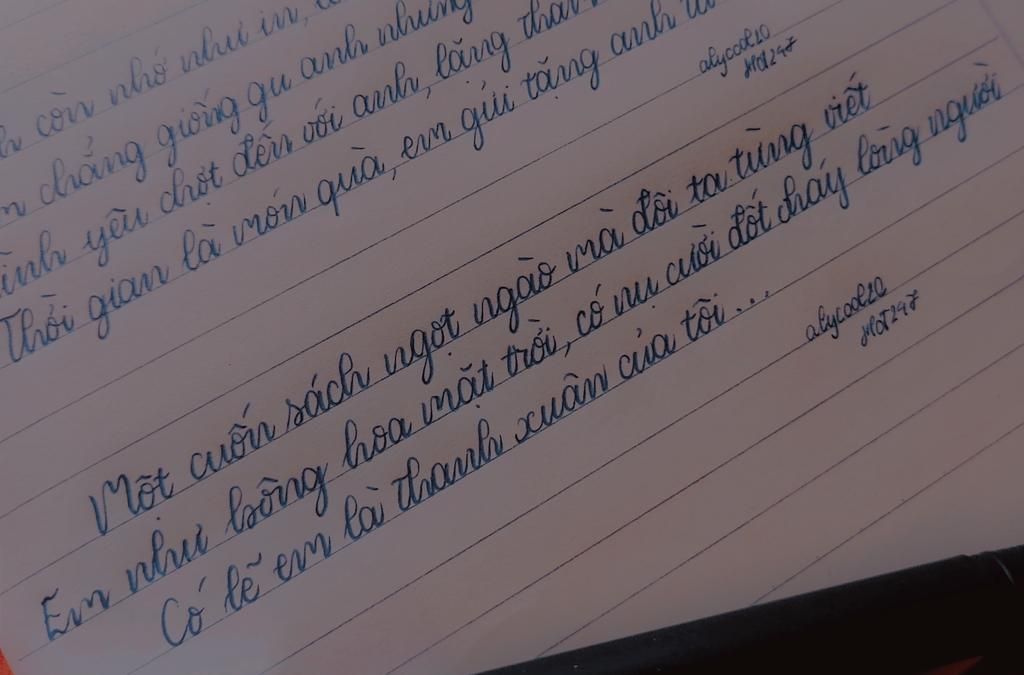 còn nhớ như in,
chẳng giống gu anh nhưng
yêu chợt đến với anh, lặng
Thời gian là món quà, em gửi tặng anh
alycool20
HOT247
Một cuốn sách ngọt ngào mà đôi ta từng viết
Em như bông hoa mặt trời, có nụ cười đốt cháy lòng người
Có lẽ em là thanh xuân của tôi...
alycool20
HOT247